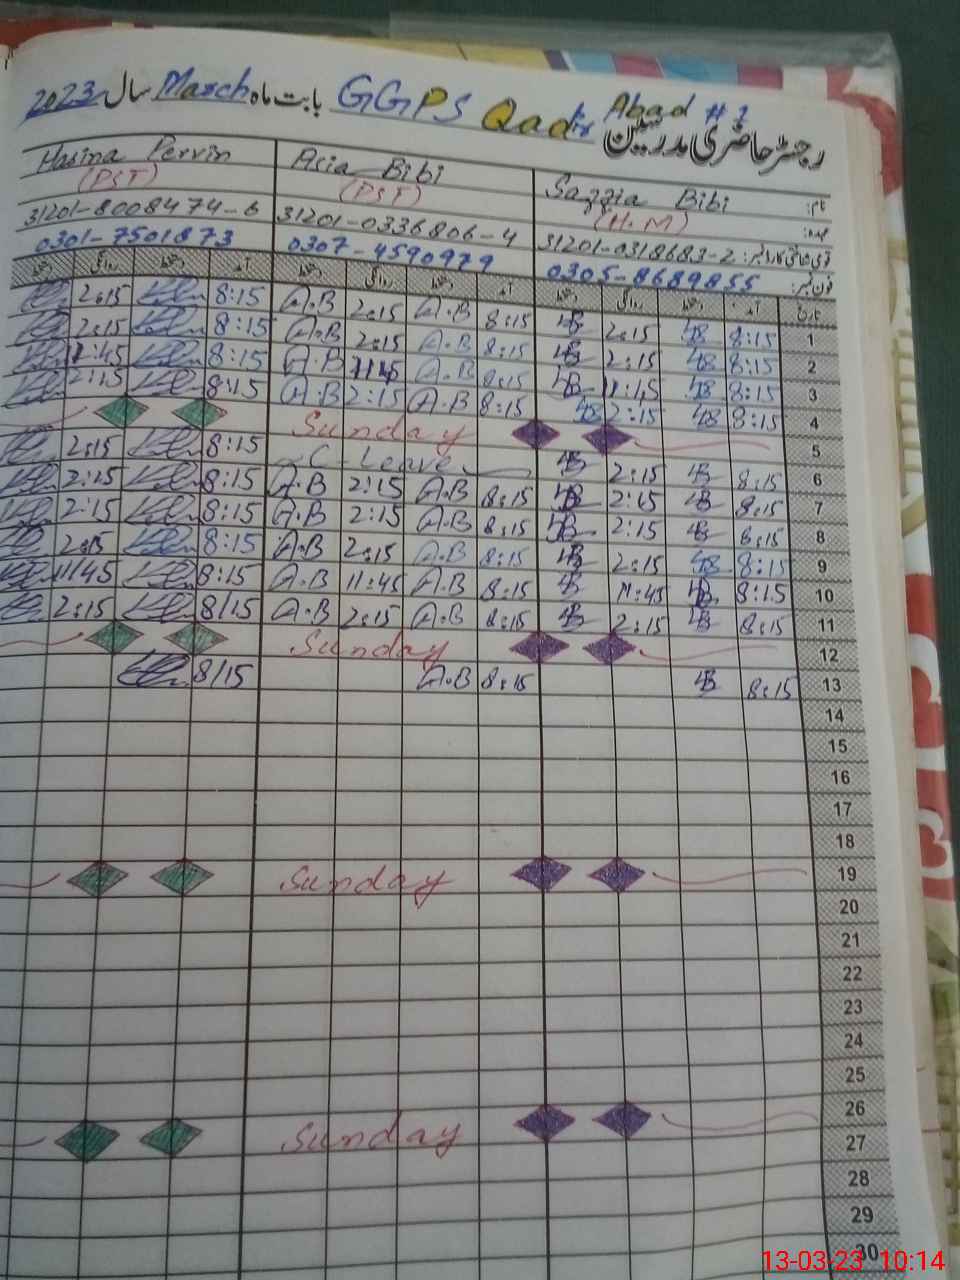 رجسٹر حاضری مدرسین GGPS Qadir Abad # 1 بابت ماہ March سال 2023
نام: Sazzia Bibi Asia Bibi Hasina Pervin
عہدہ: (H.M) (PST) (PST)
قومی شناختی کارڈ نمبر: 31201-0318683-2 31201-0336806-4 31201-8008474-6
فون نمبر: 0305-8689855 0307-4590979 0301-7501873
تاریخ آمد دستخط روانگی دستخط آمد دستخط روانگی دستخط آمد دستخط روانگی دستخط
1 8:15 2:15 8:15 A.B 2:15 A.B 8:15 2:15
2 8:15 2:15 8:15 A.B 2:15 A.B 8:15 2:15
3 8:15 11:45 8:15 A.B 11:45 A.B 8:15 11:45
4 8:15 2:15 8:15 A.B 2:15 A.B 8:15 2:15
5 Sunday
6 8:15 2:15 C-Leave 8:15 2:15
7 8:15 2:15 8:15 A.B 2:15 A.B 8:15 2:15
8 8:15 2:15 8:15 A.B 2:15 A.B 8:15 2:15
9 8:15 2:15 8:15 A.B 2:15 A.B 8:15 2:15
10 8:15 11:45 8:15 A.B 11:45 A.B 8:15 11/45
11 8:15 2:15 8:15 A.B 2:15 A.B 8/15 2:15
12 Sunday
13 8:15 8:15 A.B 8/15
14
15
16
17
18
19 Sunday
20
21
22
23
24
25
26 Sunday
27
28
29
30
13-03-23 10:14